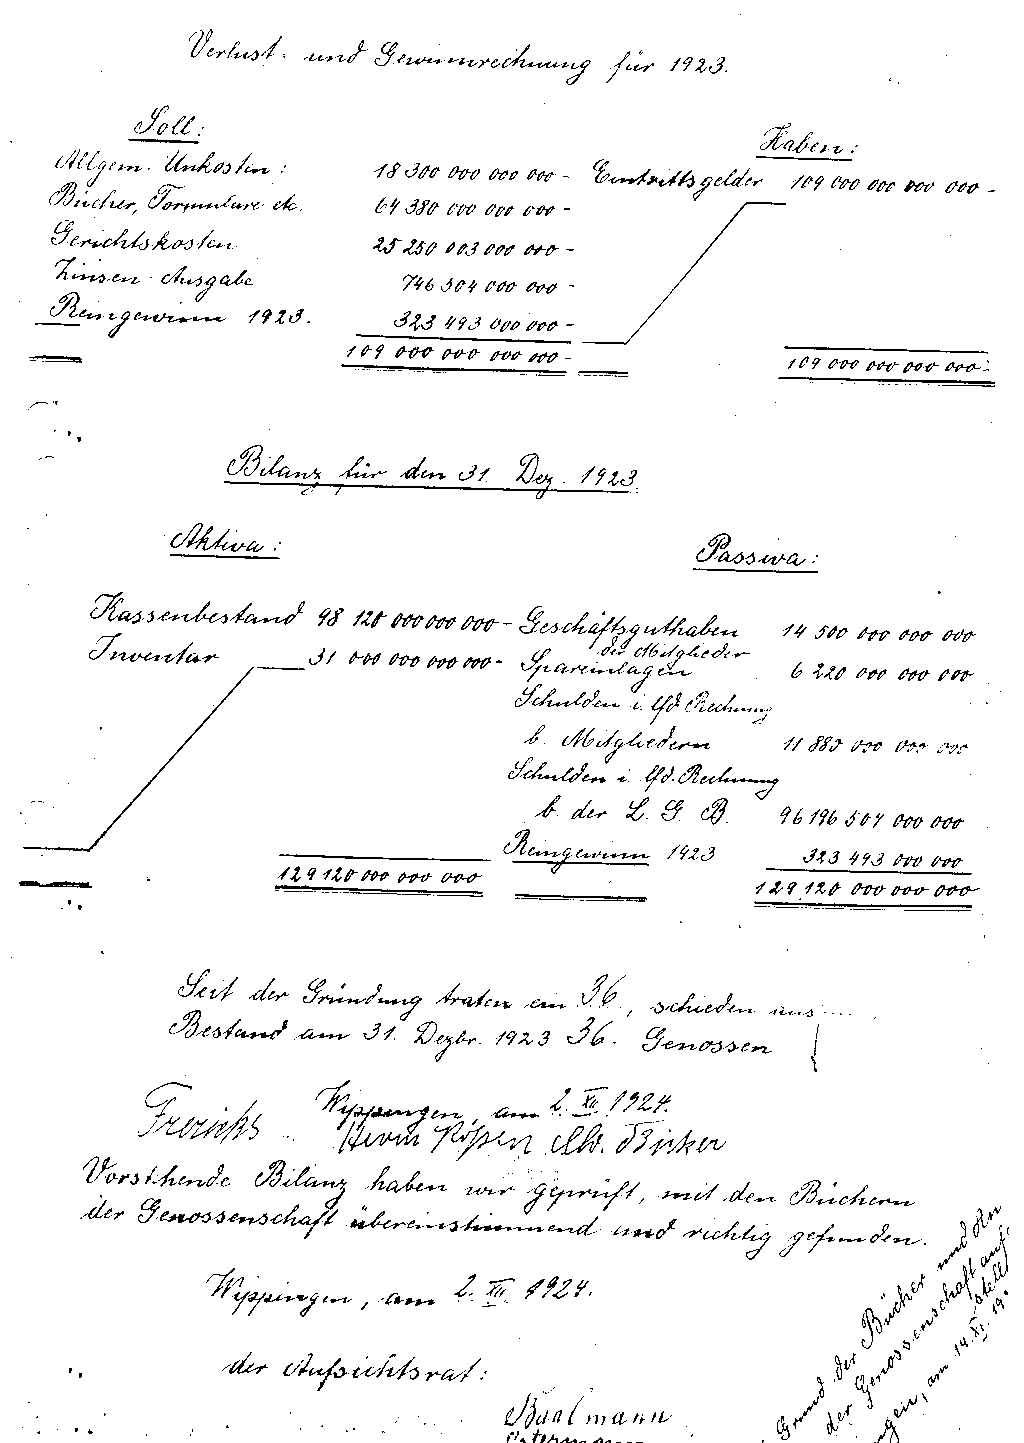 Verlust- und Gewinnrechnung für 1923.
Soll: Haben:
Allgem. Unkosten: 18 300 000 000 000 - Eintrittsgelder 109 000 000 000 000 -
Bücher, Formulare etc. 64 380 000 000 000 -
Gerichtskosten 25 250 003 000 000 -
Zinsen-Ausgabe 746 504 000 000 -
Reingewinn 1923. 323 493 000 000 -
109 000 000 000 000 - 109 000 000 000 000 -
Bilanz für den 31. Dez. 1923.
Aktiva: Passiva:
Kassenbestand 98 120 000 000 000 - Geschäftsguthaben 14 500 000 000 000
der Mitglieder
Inventar 31 000 000 000 000 - Spareinlagen 6 220 000 000 000
Schulden i. lfd. Rechnung
b. Mitgliedern 11 880 000 000 000
Schulden i. lfd. Rechnung
b. der L. G. B. 96 196 507 000 000
Reingewinn 1923 323 493 000 000
129 120 000 000 000 129 120 000 000 000
Seit der Gründung traten ein 36., schieden aus ....
Bestand am 31. Dezbr. 1923 36. Genossen
Wippingen, am 2. XII. 1924.
Frericks Herm
Vorstehende Bilanz haben wir geprüft, mit den Büchern
der Genossenschaft übereinstimmend und richtig gefunden.
Wippingen, am 2. XII. 1924.
der Aufsichtsrat:
Baalmann
Grund der Bücher und
der Genossenschaft auf
am 14. XI. 19